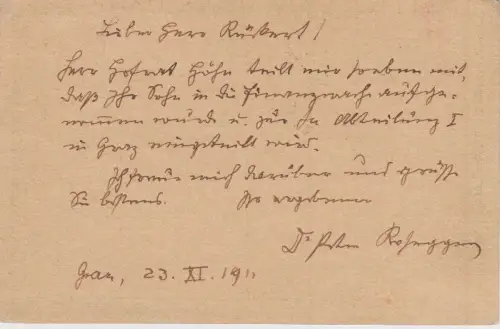 Lieber Herr Rückert!
Herr Hofrat Höhn teilt mir soeben mit,
daß Ihr Sohn in die Finanzwache aufge-
nommen wurde u. zur Abteilung I
in Graz eingeteilt wird.
Ich freue mich darüber und grüße
Sie bestens. Ihr ergebener
Dr Peter Rosegger
Graz, 23. XI. 1911